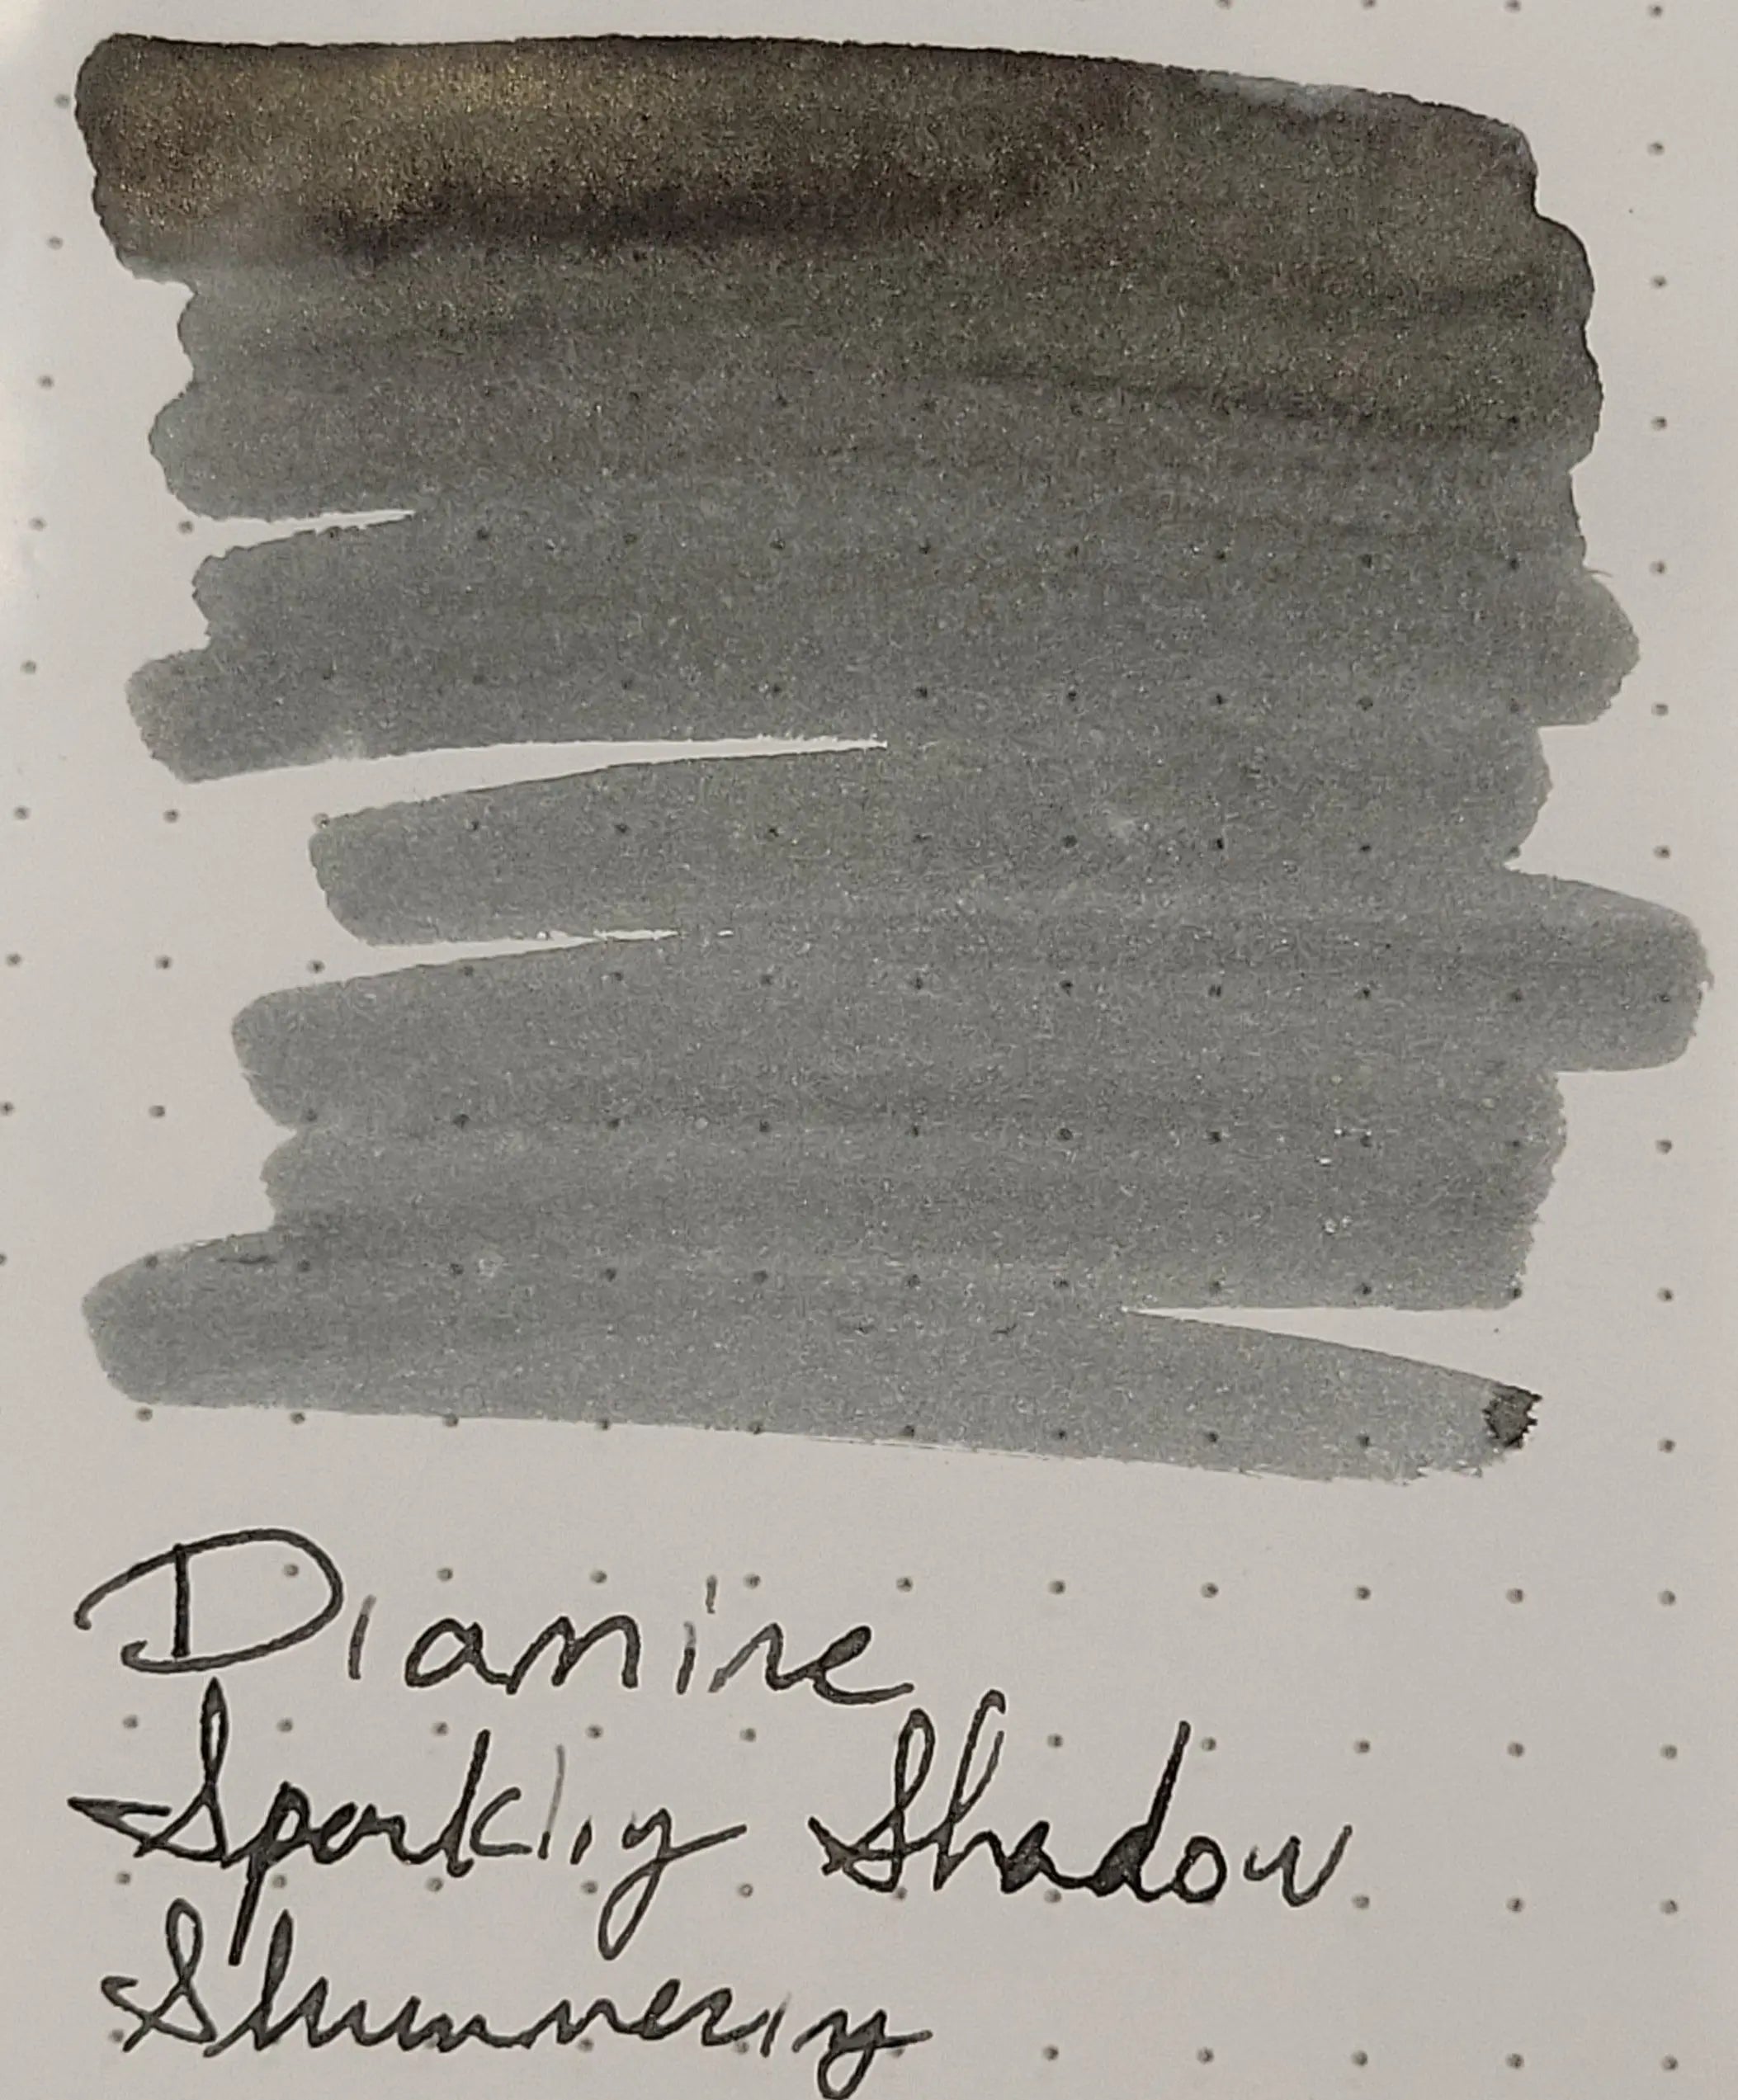 Diamine
Sparkly Shadow
Shimmery